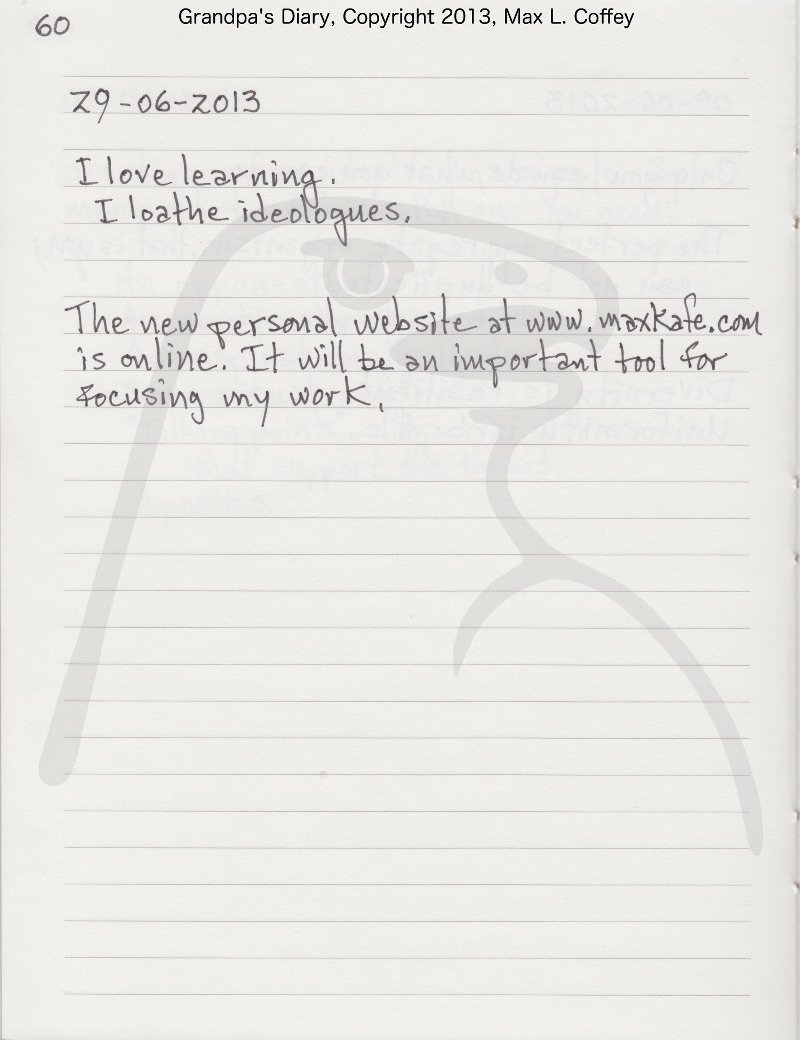 60
Grandpa's Diary, Copyright 2013, Max L. Coffey
29-06-2013
I love learning.
I loathe ideologues.
The new personal website at www.maxkafe.com
is online. It will be an important tool for
focusing my work.